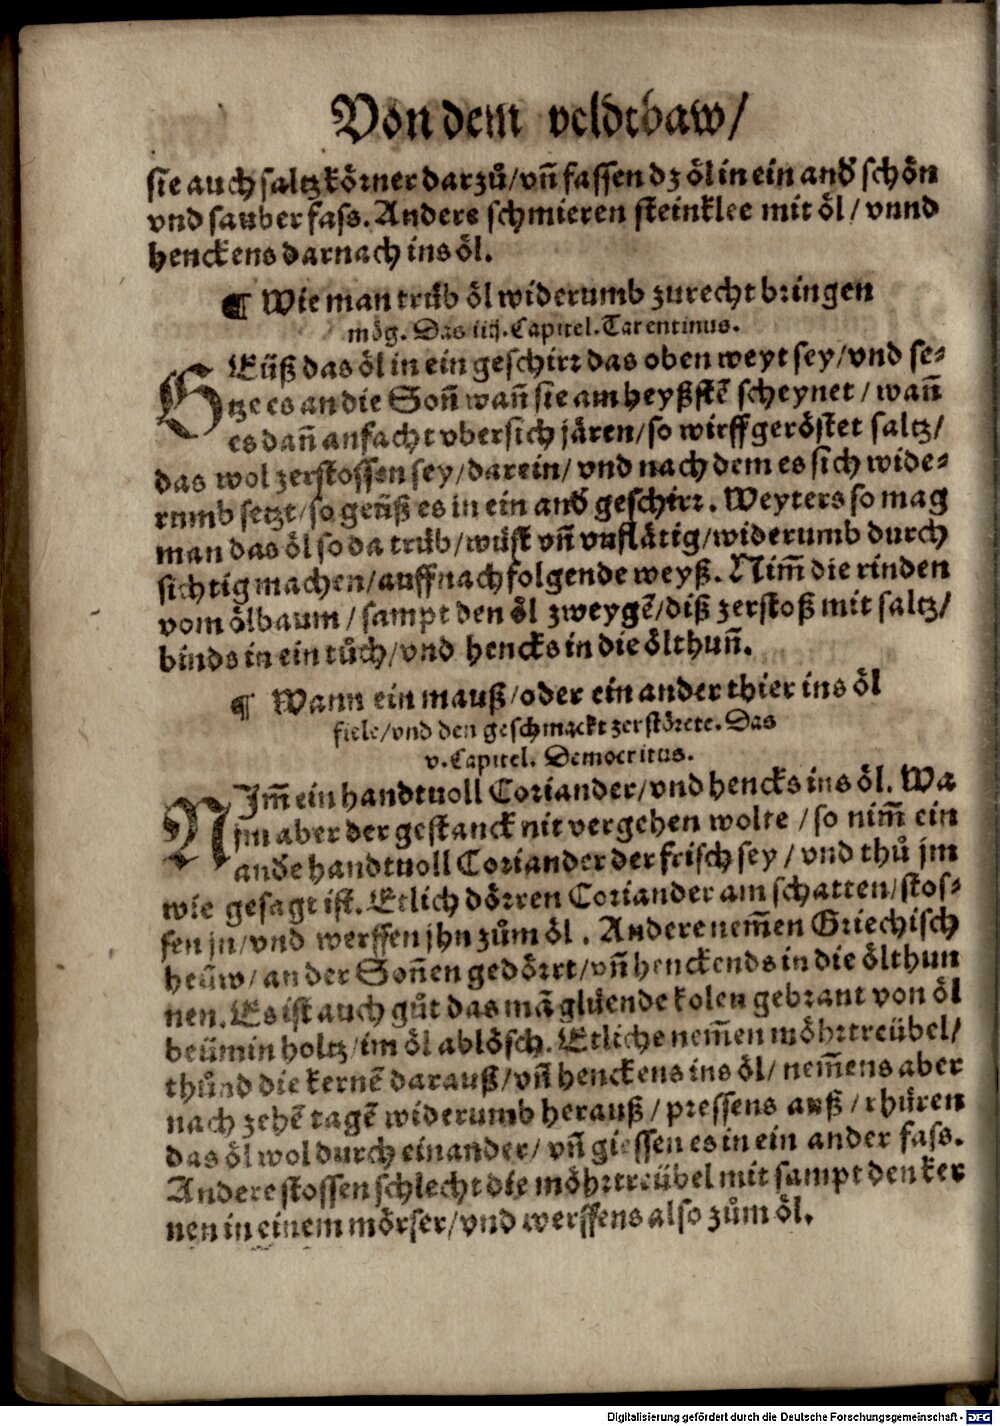 Von dem veldtbaw/
sie auch saltzkörner darzů/vñ fassen dz öl in ein and̕ schön
vnd sauber fass. Anders schmieren steinklee mit öl/ vnnd
henckens darnach ins öl.
¶ Wie man trüb öl widerumb zurecht bringen
mög. Das iiij. Capitel. Tarentinus.
GEüß das öl in ein geschirr das oben weyt sey/vnd se⸗
tze es an die Soñ wañ sie am heyßstẽ scheynet / wañ
es dañ anfacht vbersich jären/so wirff geröstet saltz/
das wol zerstossen sey/darein/ vnd nach dem es sich wide⸗
rumb setzt/so geüß es in ein and̕ geschirr. Weyters so mag
man das öl so da trüb/wüst vñ vnflätig/widerumb durch
sichtig machen/auff nachfolgende weyß. Nim̃ die rinden
vom ölbaum / sampt den öl zweygẽ/diß zerstoß mit saltz/
binds in ein tůch/vnd hencks in die ölthuñ.
¶ Wann ein mauß/oder ein ander thier ins öl
fiele/vnd den geschmackt zerstörete. Das
v. Capitel. Democritus.
NJm̃ ein handtuoll Coriander/vnd hencks ins öl. Wa
jm aber der gestanck nit vergehen wolte / so nim̃ ein
and̕e handtuoll Coriander der frisch sey / vnd thů jm
wie gesagt ist. Etlich dörren Coriander am schatten/stos⸗
sen jn/vnd werffen jhn zům öl. Andere nem̃en Griechisch
heüw/ an der Soñen gedörrt/vñ henckends in die ölthun
nen. Es ist auch gůt das mã glüende kolen gebrant von öl
beümin holtz/im öl ablösch. Etliche nem̃en möhrtreübel/
thůnd die kernẽ darauß/vñ henckens ins öl/ nem̃ens aber
nach zehẽ tagẽ widerumb herauß / pressens auß / rhüren
das öl wol durch einander/ vñ giessen es in ein ander fass.
Andere stossen schlecht die möhrtreübel mit sampt den ker
nen in einem mörser/vnd werffens also zům öl.
Digitalisierung gefördert durch die Deutsche Forschungsgemeinschaft - DFG